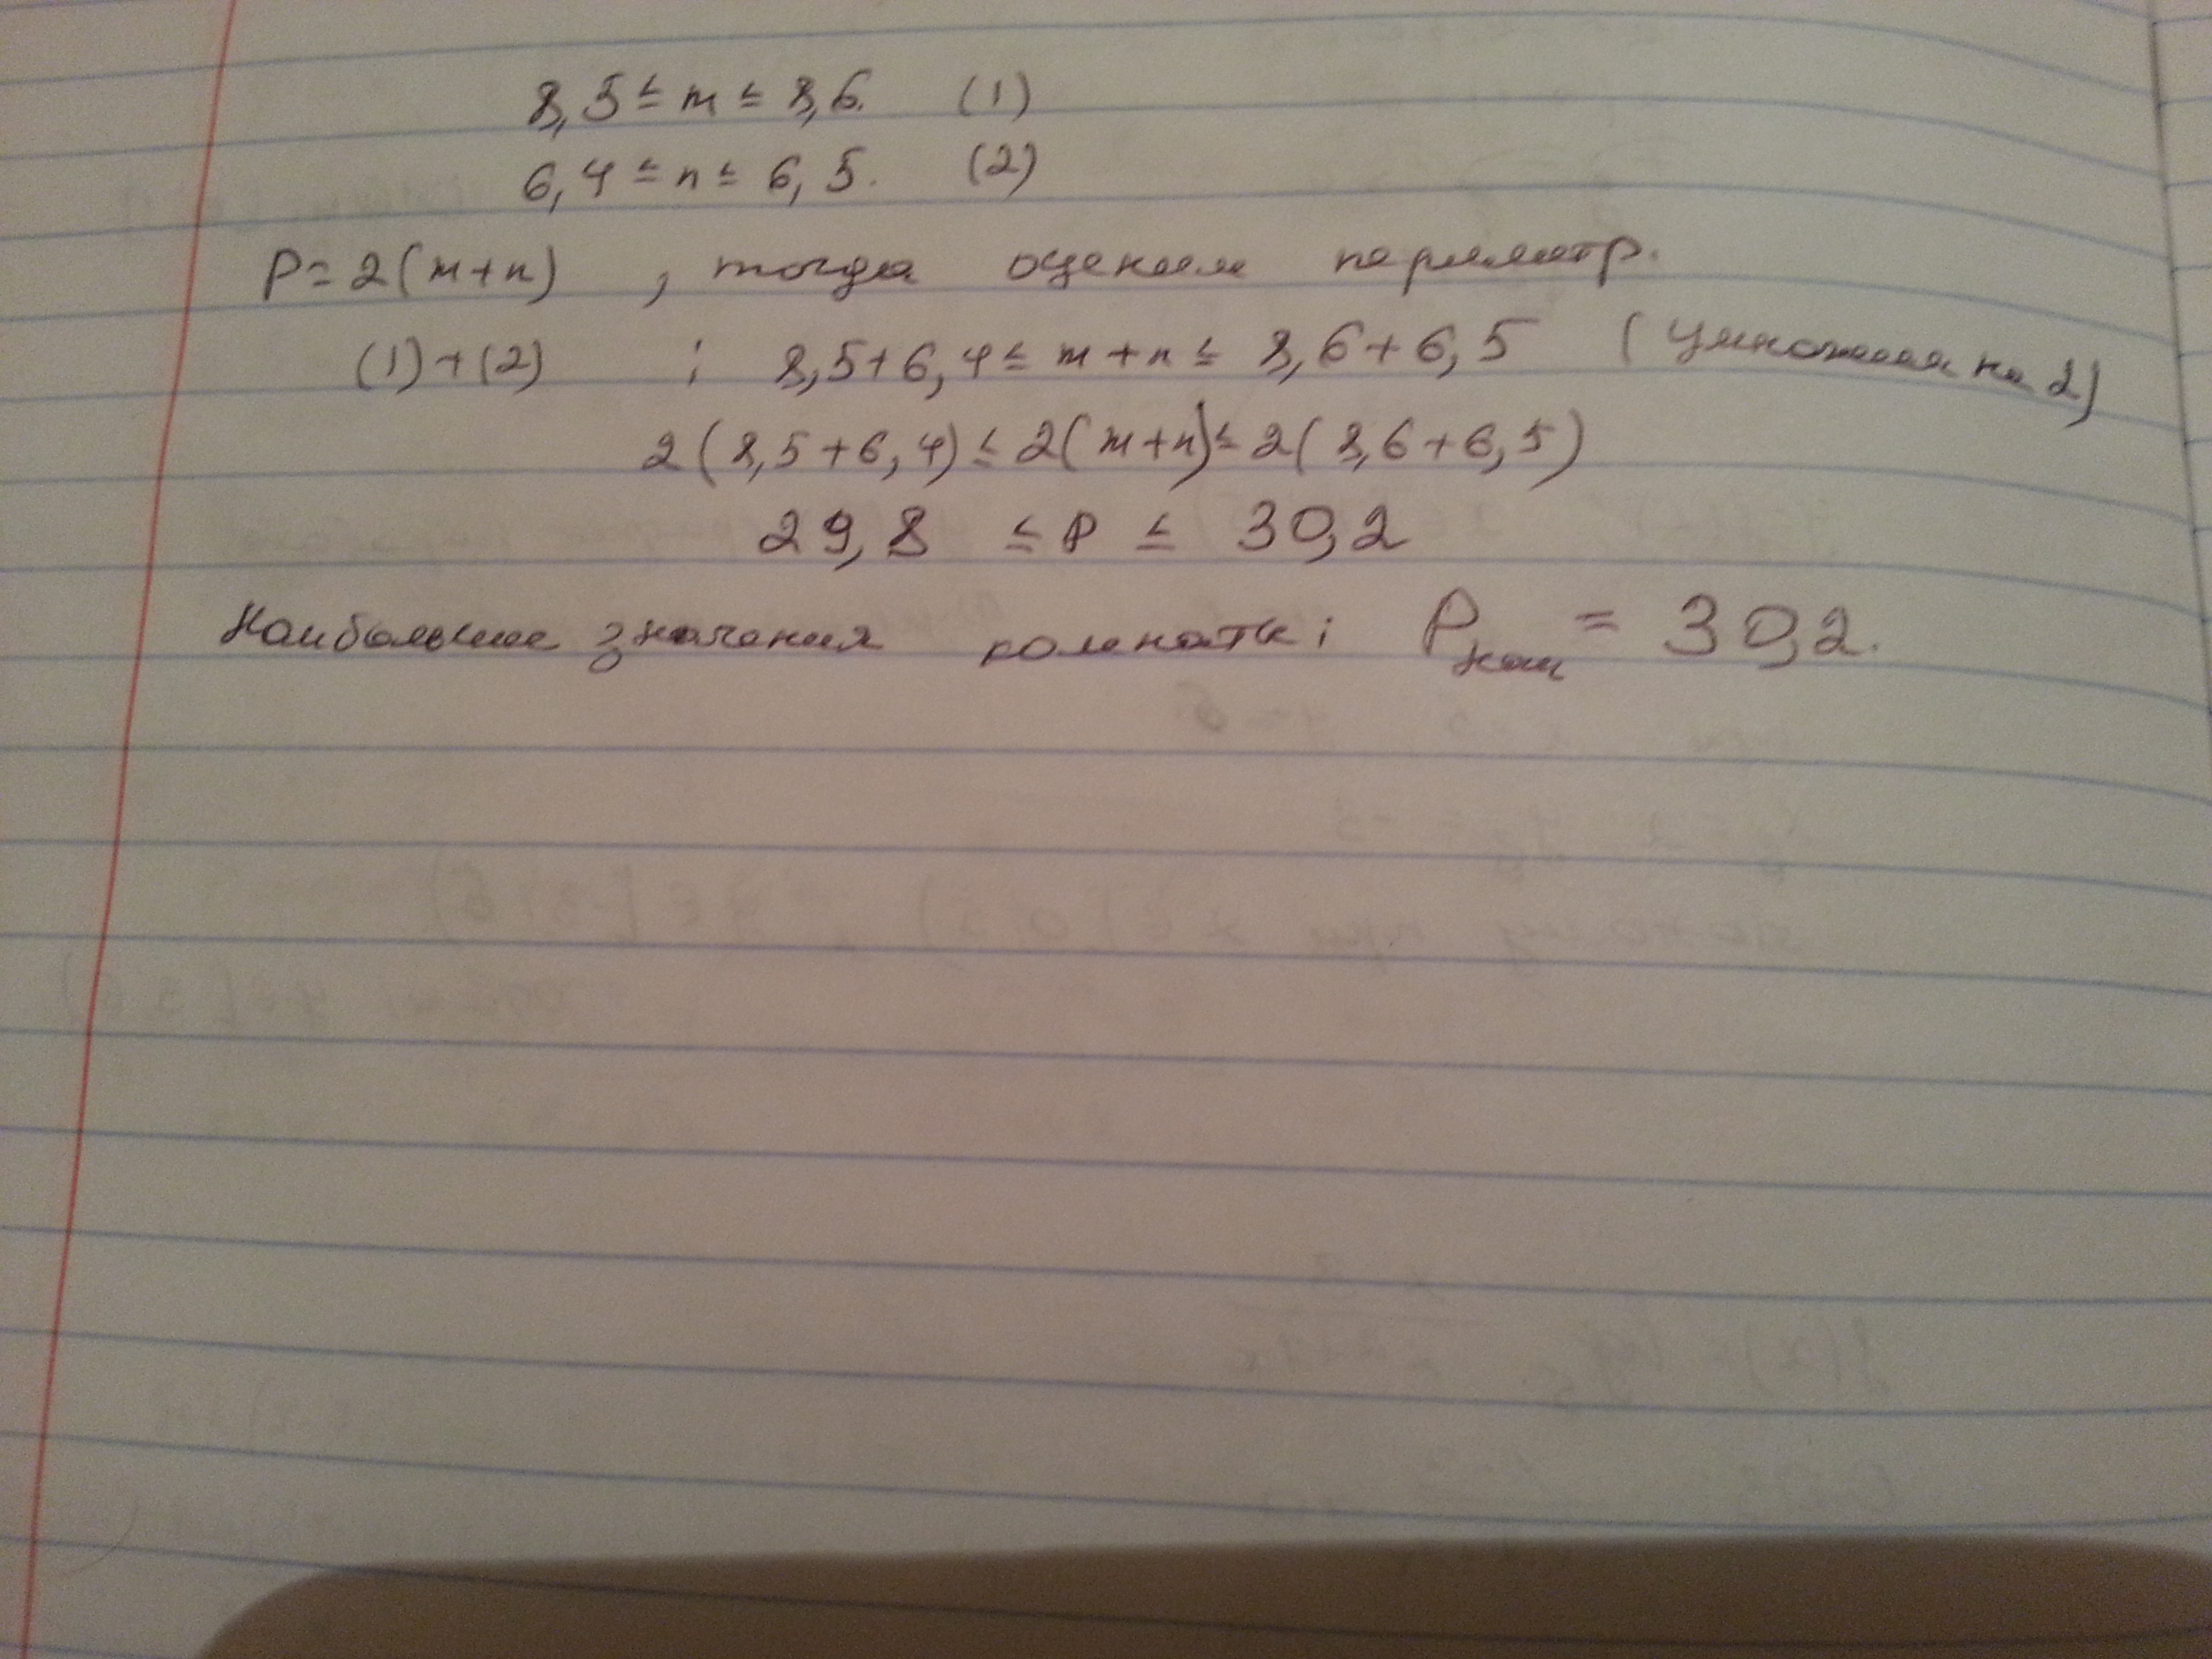 8,5 ≤ m ≤ 8,6. (1)
6,4 ≤ n ≤ 6,5. (2)
P = 2(m+n) , тогда оценим периметр.
(1)+(2) : 8,5+6,4 ≤ m+n ≤ 8,6+6,5 (умножим на 2)
2(8,5+6,4) ≤ 2(m+n) ≤ 2(8,6+6,5)
29,8 ≤ P ≤ 30,2
Наибольшие значения комнаты: Pнаи = 30,2.